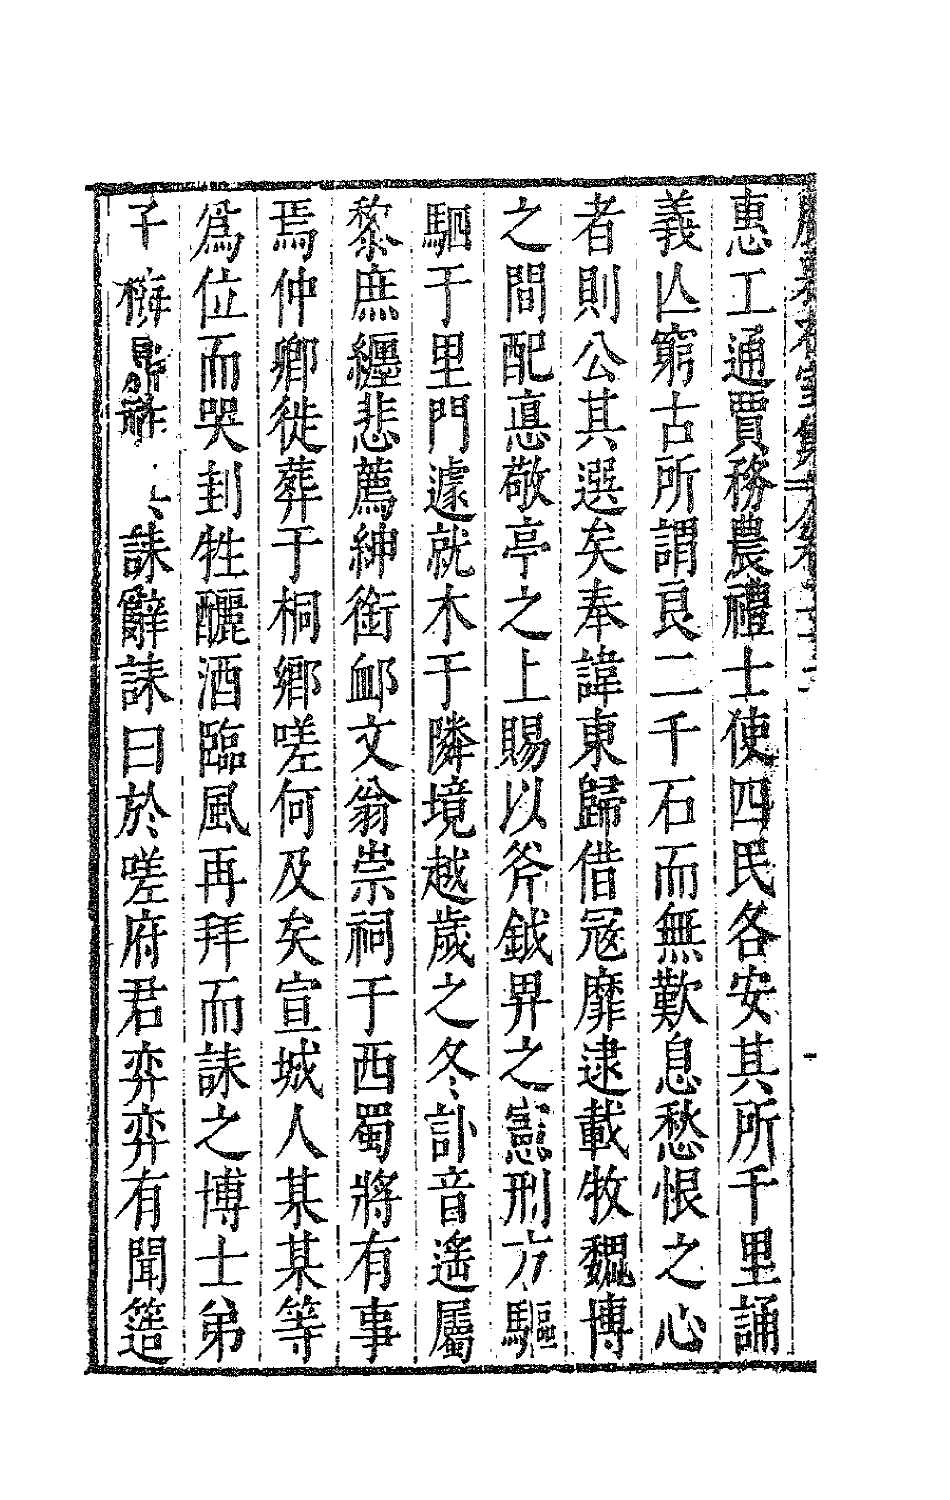 惠工通賈務農禮士使四民各安其所千里誦
義亾窮古所謂良二千石而無歎息愁恨之心
者則公其選矣奉諱東歸借寇靡逮載牧魏博
之間配悳敬亭之上賜以斧鉞畀之憲刑方驅
駟于里門遽就木于隣境越歲之冬訃音遙屬
黎庶纏悲薦紳銜衈文翁崇祠于西蜀將有事
焉仲卿徙葬于桐鄉嗟何及矣宣城人某某等
爲位而哭刲牲釃酒臨風再拜而誄之博士弟
子 誄辭誄曰於嗟府君弈弈有聞簉